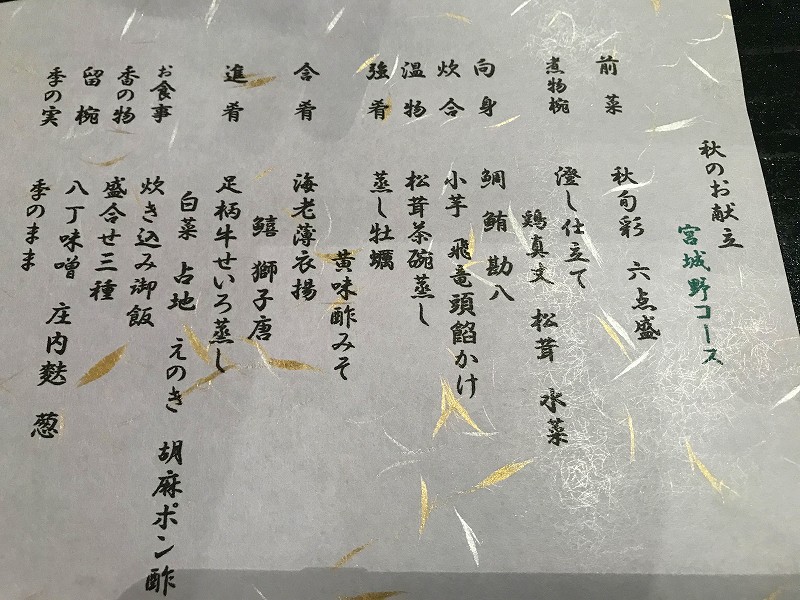 秋のお献立
宮城野コース
前菜 秋旬彩 六点盛
煮物椀 澄し仕立て
鶏真丈 松茸 水菜
向身 鯛 鮪 勘八
炊合 小芋 飛竜頭餡かけ
温物 松茸茶碗蒸し
強肴 蒸し牡蠣
黄味酢みそ
合肴 海老薄衣揚
鱚 獅子唐
進肴 足柄牛せいろ蒸し
白菜 占地 えのき 胡麻ポン酢
お食事 炊き込み御飯
香の物 盛合せ三種
留椀 八丁味噌 庄内麩 葱
季の実 季のまま